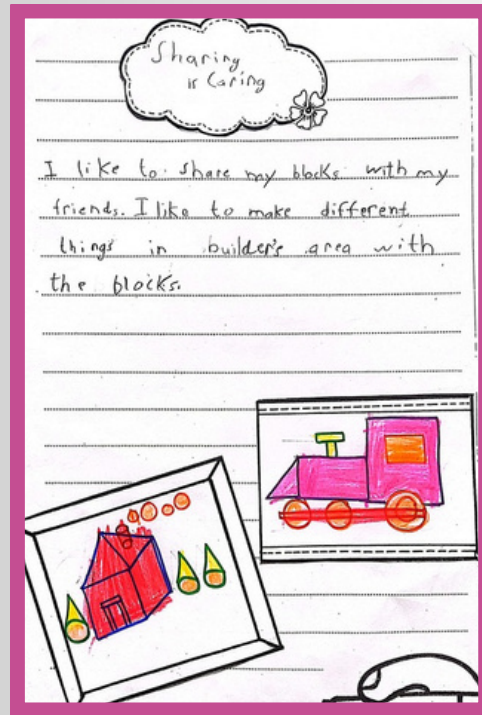 Sharing
is Caring
I like to share my blocks with my
friends. I like to make different
things in builder's area with
the blocks.